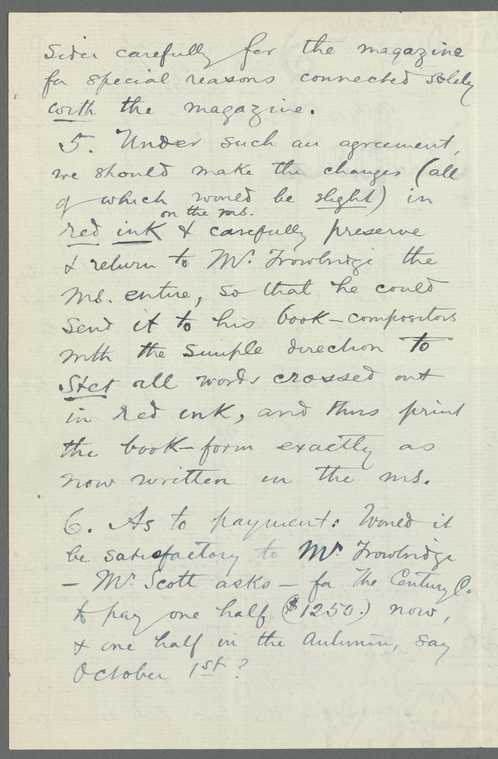 sider carefully for the magazine
for special reasons connected solely
with the magazine.
5. Under such an agreement,
we should make the changes (all
of which would be slight) in
on the ms.
red ink & carefully preserve
& return to Mr. Trowbridge the
ms. entire, so that he could
send it to his book-compositors
with the simple direction to
stet all words crossed out
in red ink, and thus print
the book-form exactly as
now written in the ms.
6. As to payment: Would it
be satisfactory to Mr. Trowbridge
– Mr. Scott asks – for The Century Co.
to pay one half ($1250.) now,
& one half in the Autumn, say
October 1st?